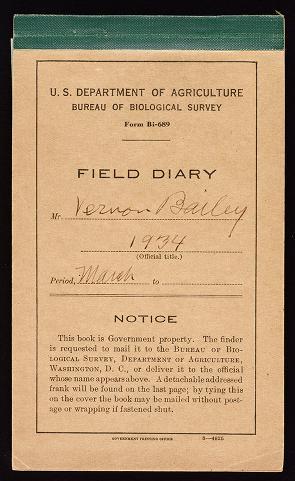 U. S. DEPARTMENT OF AGRICULTURE
BUREAU OF BIOLOGICAL SURVEY
Form Bi-689
FIELD DIARY
Mr. Vernon Bailey
1934
(Official title.)
Period, March to
NOTICE
This book is Government property. The finder
is requested to mail it to the BUREAU OF BIO-
LOGICAL SURVEY, DEPARTMENT OF AGRICULTURE,
WASHINGTON, D. C., or deliver it to the official
whose name appears above. A detachable addressed
frank will be found on the last page; by tying this
on the cover the book may be mailed without post-
age or wrapping if fastened shut.
GOVERNMENT PRINTING OFFICE 8—4825